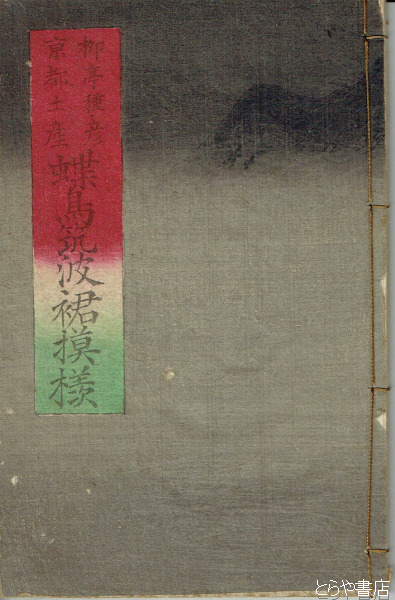 柳亭種彦
京都土産
蝶鳥筑波裙模様
とらや書店